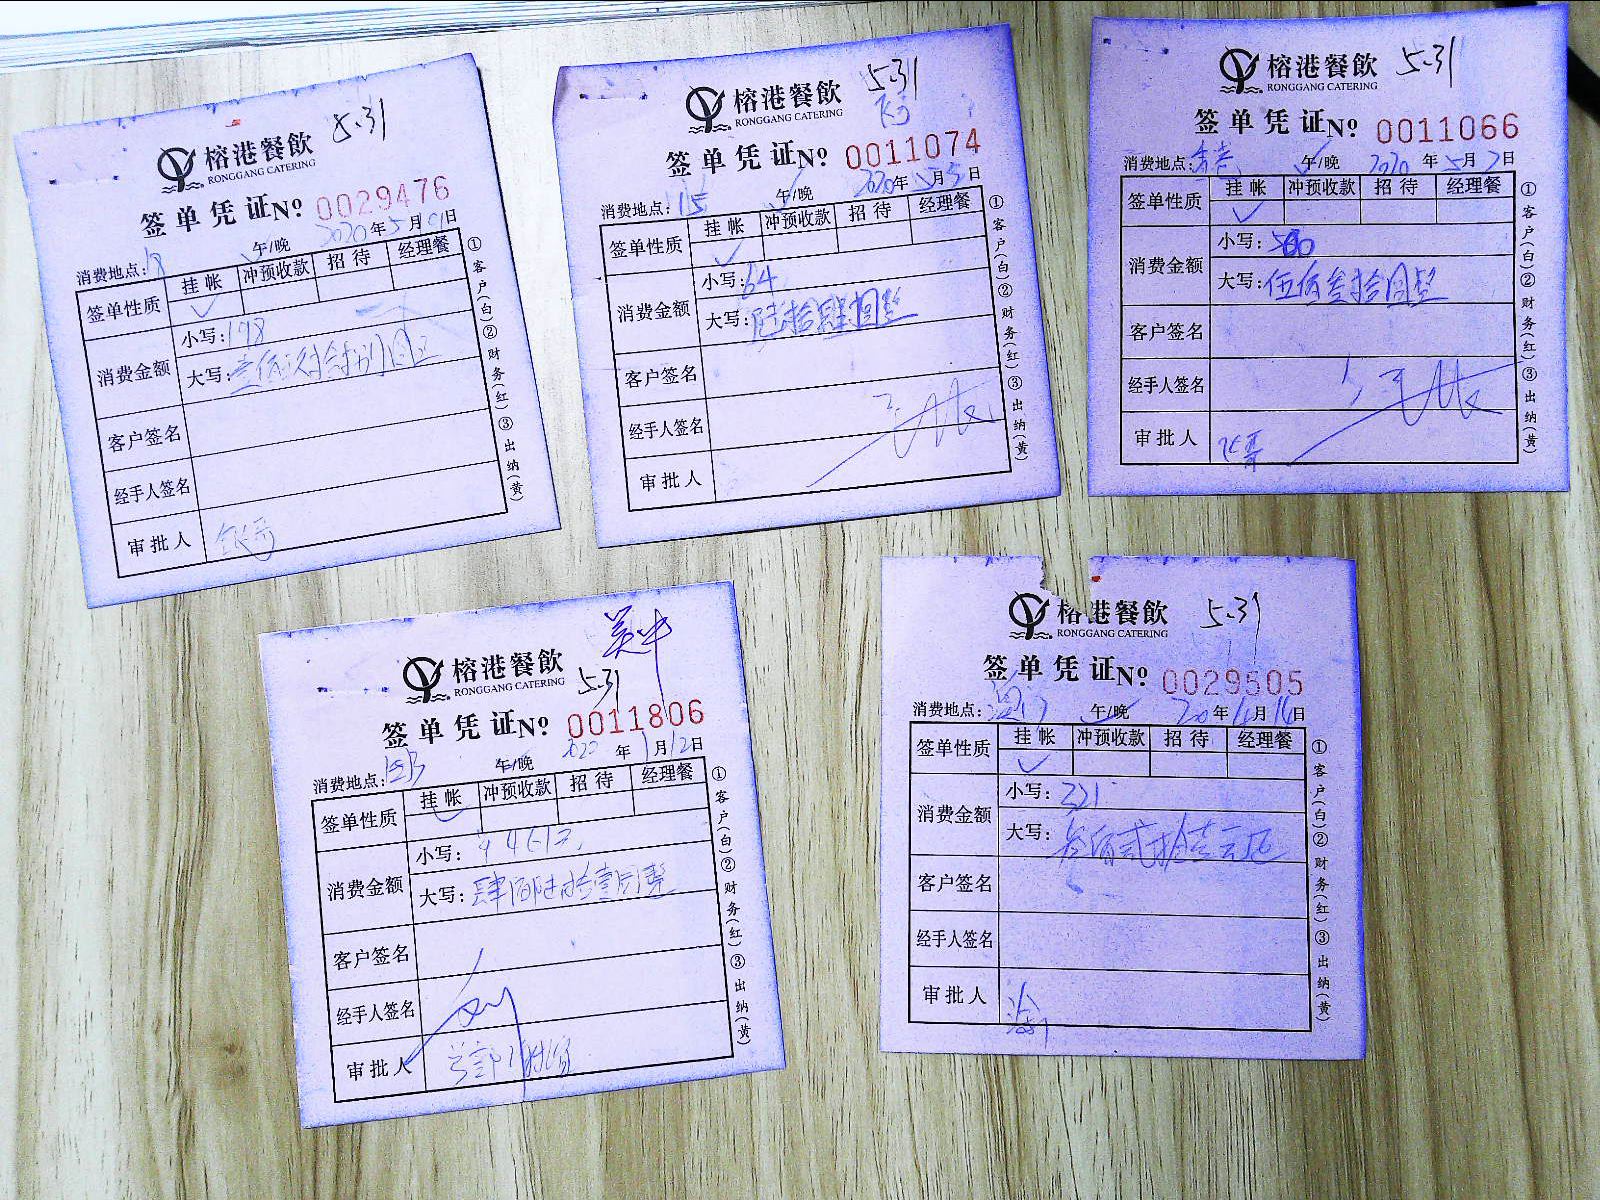 榕港餐飲 5.31
RONGGANG CATERING
签单凭证No 0029476
消费地点: 午/晚 2020年5月01日
签单性质 挂帐 冲预收款 招待 经理餐
消费金额 小写:198
大写:
客户签名
经手人签名
审批人
①客户(白)②财务(红)③出纳(黄)
榕港餐飲 5.31
RONGGANG CATERING
签单凭证No 0011074
消费地点:115 午/晚 2020年5月5日
签单性质 挂帐 冲预收款 招待 经理餐
消费金额 小写:64
大写:陆拾肆圆整
客户签名
经手人签名
审批人
①客户(白)②财务(红)③出纳(黄)
榕港餐飲 5.31
RONGGANG CATERING
签单凭证No 0011066
消费地点: 午/晚 2020年5月2日
签单性质 挂帐 冲预收款 招待 经理餐
消费金额 小写:
大写:伍佰叁拾圆整
客户签名
经手人签名
审批人
①客户(白)②财务(红)③出纳(黄)
榕港餐飲 5.31
RONGGANG CATERING
签单凭证No 0011806
消费地点: 午/晚 年1月12日
签单性质 挂帐 冲预收款 招待 经理餐
消费金额 小写:
大写:肆佰陆拾壹圆整
客户签名
经手人签名 刘
审批人
①客户(白)②财务(红)③出纳(黄)
榕港餐飲 5.31
RONGGANG CATERING
签单凭证No 0029505
消费地点: 午/晚 20年4月14日
签单性质 挂帐 冲预收款 招待 经理餐
消费金额 小写:321
大写:叁佰贰拾壹元正
客户签名
经手人签名
审批人
①客户(白)②财务(红)③出纳(黄)